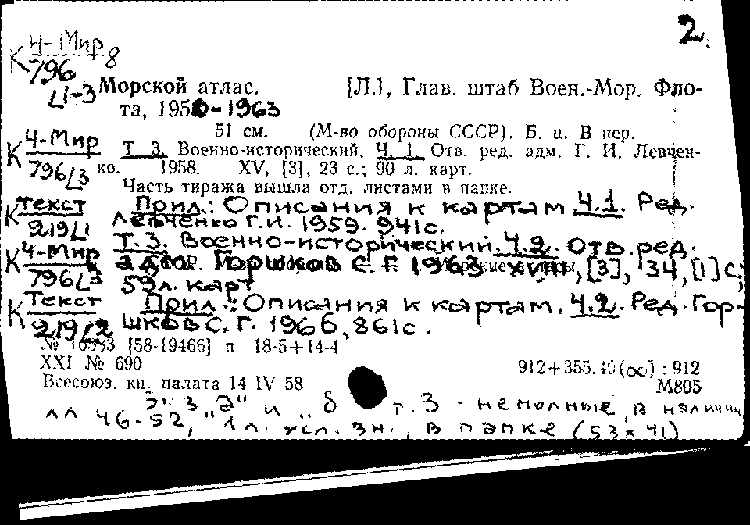 2.
К Ч-Мир 8
796
L1-3 Морской атлас. [Л.], Глав. штаб Воен.-Мор. Фло-
та, 1950-1963
51 см. (М-во обороны СССР). Б. ц. В пер.
К Ч-Мир Т. 3. Военно-исторический. Ч. 1. Отв. ред. адм. Г. И. Левчен-
796/3 ко. 1958. XV, [3], 23 с.; 90 л. карт.
Часть тиража вышла отд. листами в папке.
К Текст Прил.: Описания к картам. Ч.1. Ред.
219/1 Левченко Г.И. 1959. 941с.
К Ч-Мир Т. 3. Военно-исторический. Ч.2. Отв. ред.
796/3 Горшков С. Г. 1963. XVIII, [3], 34, [1] с;
59 л. карт
К Текст Прил.: Описания к картам. Ч.2. Ред. Гор-
219/2 шков С. Г. 1966, 861с.
[58-19466] п 18-5+14-4
XXI № 690 912+355.40(∞) : 912
Всесоюз. кн. палата 14 IV 58 М805
и "д" т. 3 - неполные, в наличии
лл 46-52, 1 л. усл. зн., в папке (53×41)